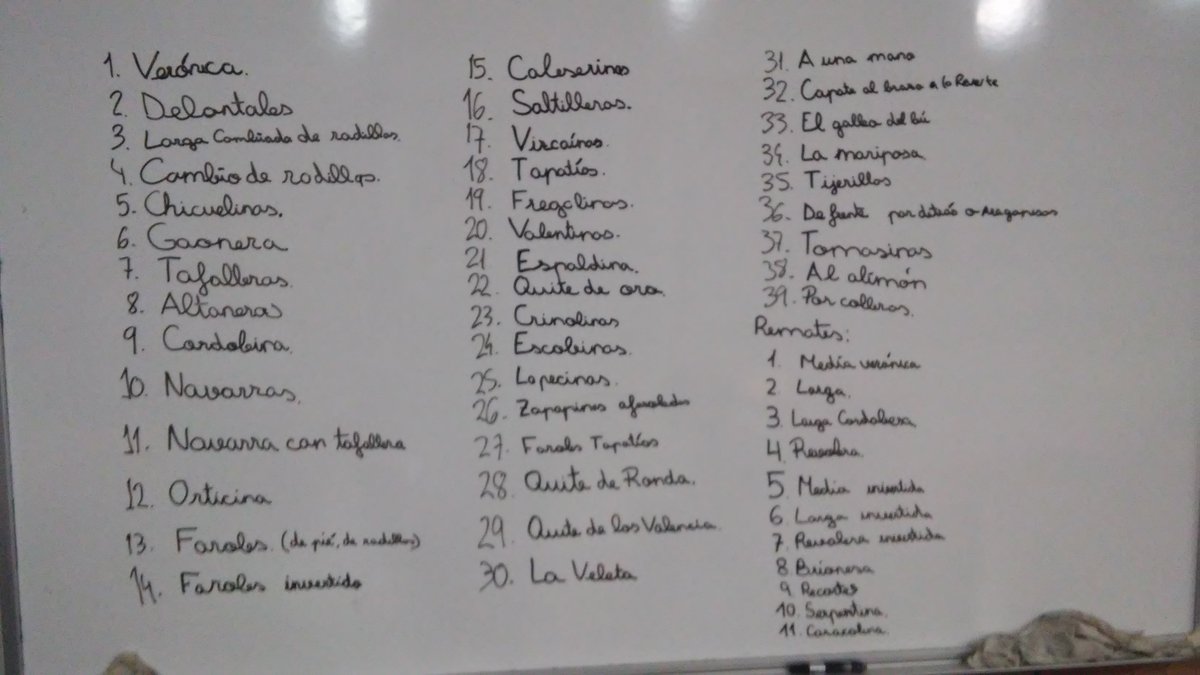 1. Verónica.
2. Delantales
3. Larga Cambiada de rodillas.
4. Cambio de rodillas.
5. Chicuelinas.
6. Gaonera
7. Tafalleras.
8. Altaneras
9. Cordobina.
10. Navarras.
11. Navarra con tafallera
12. Orticina
13. Faroles. (de pié, de rodillas)
14. Faroles invertido
15. Caleserinas
16. Saltilleras.
17. Vizcaínas.
18. Tapatías.
19. Fregolinas.
20. Valentinas.
21 Espaldina.
22. Quite de oro.
23. Crinolinas
24. Escobinas.
25. Lopecinas.
26. Zapopinas afaroladas
27. Faroles Tapatíos
28. Quite de Ronda.
29. Quite de los Valencia.
30. La Veleta
31. A una mano
32. Capote al brazo a lo Reverte
33. El galleo del bú
34. La mariposa
35. Tijerillas
36. De frente por detrás o Aragonesas
37. Tomasinas
38. Al alimón
39. Por colleras.
Remates:
1. Media verónica
2. Larga.
3. Larga Cordobesa
4. Revolera.
5. Media invertida
6. Larga invertida
7. Revolera invertida
8 Brionesa
9. Recortes
10. Serpentina.
11. Caracolina.